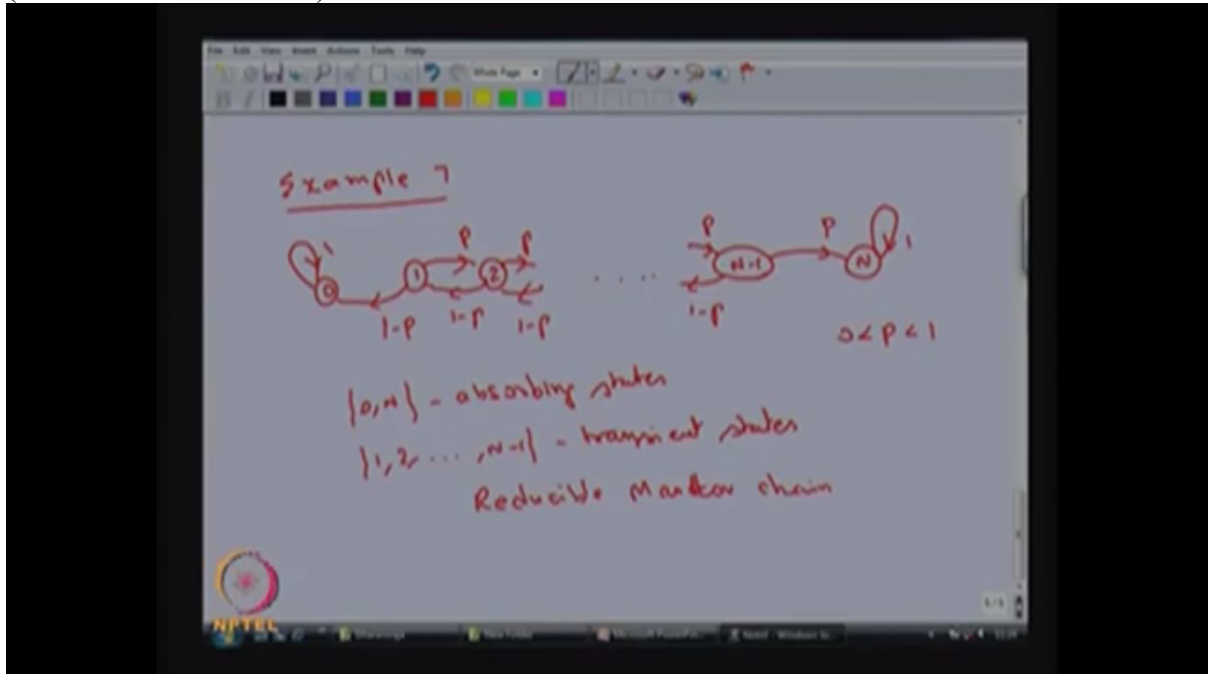 File Edit View Insert Actions Tools Help
Whole Page
Example 7
1 0 1-p 1 p 1-p 2 p 1-p . . . . p 1-p N-1 p N 1
0 < p < 1
{0,N} - absorbing states
{1,2, ... ,N-1} - transient states
Reducible Markov chain
5/5
NPTEL
New Folder